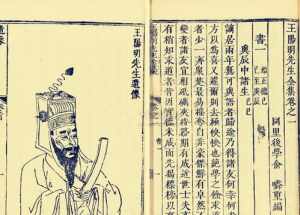 王陽明先生全集卷之一
里後學俞嶙重編
書一
始正德己巳
至庚辰
與辰中諸生 己巳
謫居兩年無可與語者歸途乃得諸友何幸何幸
方以為喜又遽爾別去極怏怏也絕學之餘求道
者少一齊眾楚最易搖奪自非豪傑鮮有卓然不
變者諸友宜相砥礪夾持務期有成近世士夫亦
有稍知求道者皆因實德未成而先揭標榜以
王陽明先生遺像
遺像